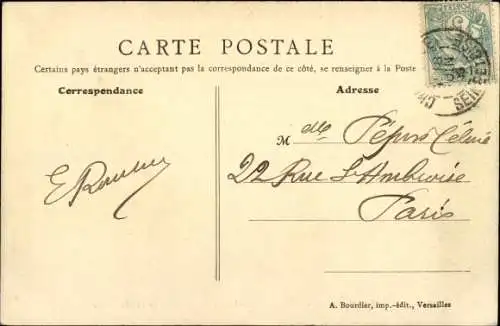 CARTE POSTALE
Certains pays étrangers n'acceptant pas la correspondance de ce côté, se renseigner à la Poste
Correspondance
Adresse
Mdlle Célina
22 Rue St Ambroise
Paris
E
A. Bourdier, imp.-édit., Versailles